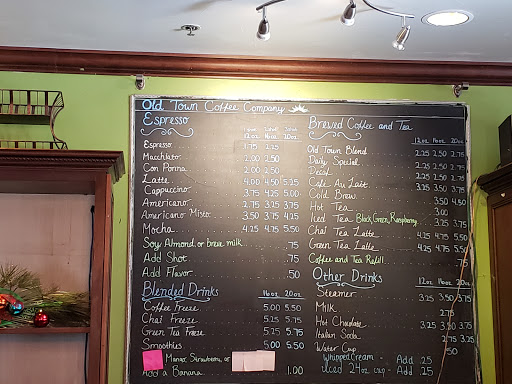 Old Town Coffee Company
Espresso
12oz 16oz 20oz
Espresso 1.75 2.25
Macchiato 2.00 2.50
Con Panna 2.00 2.50
Latte 4.00 4.50 5.25
Cappuccino 3.75 4.25 5.00
Americano 2.75 3.25 3.75
Americano Misto 3.50 3.75 4.25
Mocha 4.25 4.75 5.50
Soy, Almond, or breve milk .75
Add Shot .75
Add Flavor .50
Blended Drinks 16oz 20oz
Coffee Freeze 5.00 5.50
Chai Freeze 5.25 5.75
Green Tea Freeze 5.25 5.75
Smoothies 5.00 5.50
Mango, Strawberry, or
Add a Banana 1.00
Brewed Coffee and Tea
12oz 16oz 20oz
Old Town Blend 2.25 2.50 2.75
Daily Special 2.25 2.50 2.75
Decaf 2.25 2.50 2.75
Cafe Au Lait 3.25 3.50 3.75
Cold Brew 3.50 4.50
Hot Tea 3.00
Iced Tea Black, Green, Raspberry 3.25 3.75
Chai Tea Latte 4.25 4.75 5.50
Green Tea Latte 4.25 4.75 5.50
Coffee and Tea Refill .75
Other Drinks
12oz 16oz 20oz
Steamer 3.25 3.50 3.75
Milk 2.75
Hot Chocolate 3.25 3.50 3.75
Italian Soda 2.75 3.25
Water Cup .50
Whipped Cream - Add .25
Iced 24oz - Add .25